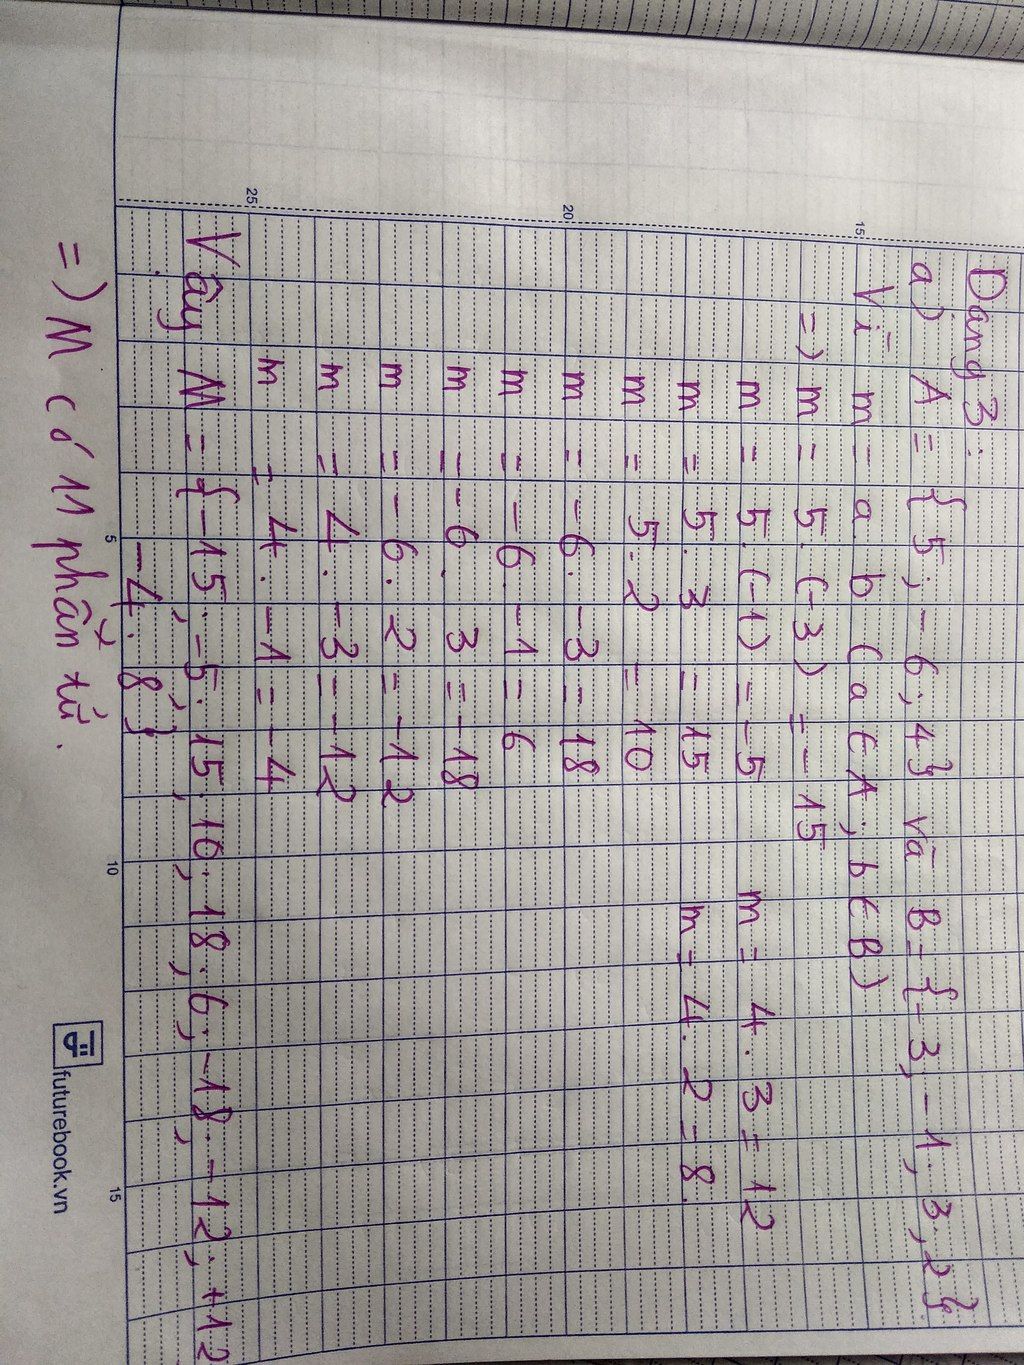 Dạng 3:
a) A = { 5 ; -6 ; 4 } và B = { -3, -1 ; 3, 2 }
Vì m = a . b ( a ∈ A ; b ∈ B )
=) m = 5 . (-3) = -15
m = 5 . (-1) = -5 m = 4 . 3 = 12
m = 5 . 3 = 15 m = 4 . 2 = 8.
m = 5 . 2 = 10
m = -6 . -3 = 18
m = -6 . -1 = 6
m = -6 . 3 = -18
m = -6 . 2 = -12
m = 4 . -3 = -12
m = 4 . -1 = -4
Vậy M = { -15 ; -5 ; 15 ; 10 ; 18 ; 6 ; -18 ; -12 ; +12
-4 ; 8 }
=) M có 11 phần tử.
15
20
25
5
10
15
futurebook.vn